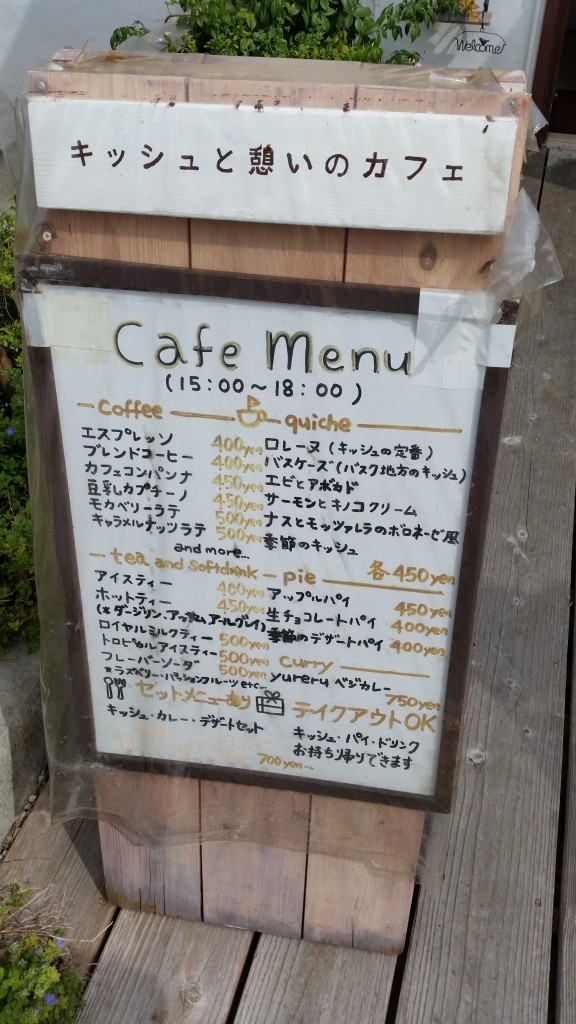 Welcome
キッシュと憩いのカフェ
Cafe Menu
(15:00～18:00)
coffee
エスプレッソ 400yen
ブレンドコーヒー 400yen
カフェコンパンナ 450yen
豆乳カプチーノ 450yen
モカベリーラテ 500yen
キャラメルナッツラテ 500yen
and more...
quiche
ロレーヌ(キッシュの定番)
バスケーズ(バスク地方のキッシュ)
エビとアボカド
サーモンとキノコクリーム
ナスとモッツァレラのボロネーゼ風
季節のキッシュ
各450yen
tea and softdrink
アイスティー 400yen
ホットティー 450yen
(*ダージリン、アッサム、アールグレイ)
ロイヤルミルクティー 500yen
トロピカルアイスティー 500yen
フレーバーソーダ 500yen
*ラズベリー・パッションフルーツetc...
pie
アップルパイ 450yen
生チョコレートパイ 400yen
季節のデザートパイ 400yen
curry
yureru ベジカレー
750yen
セットメニューあり
キッシュ・カレー・デザートセット
700yen～
テイクアウトOK
キッシュ・パイ・ドリンク
お持ち帰りできます